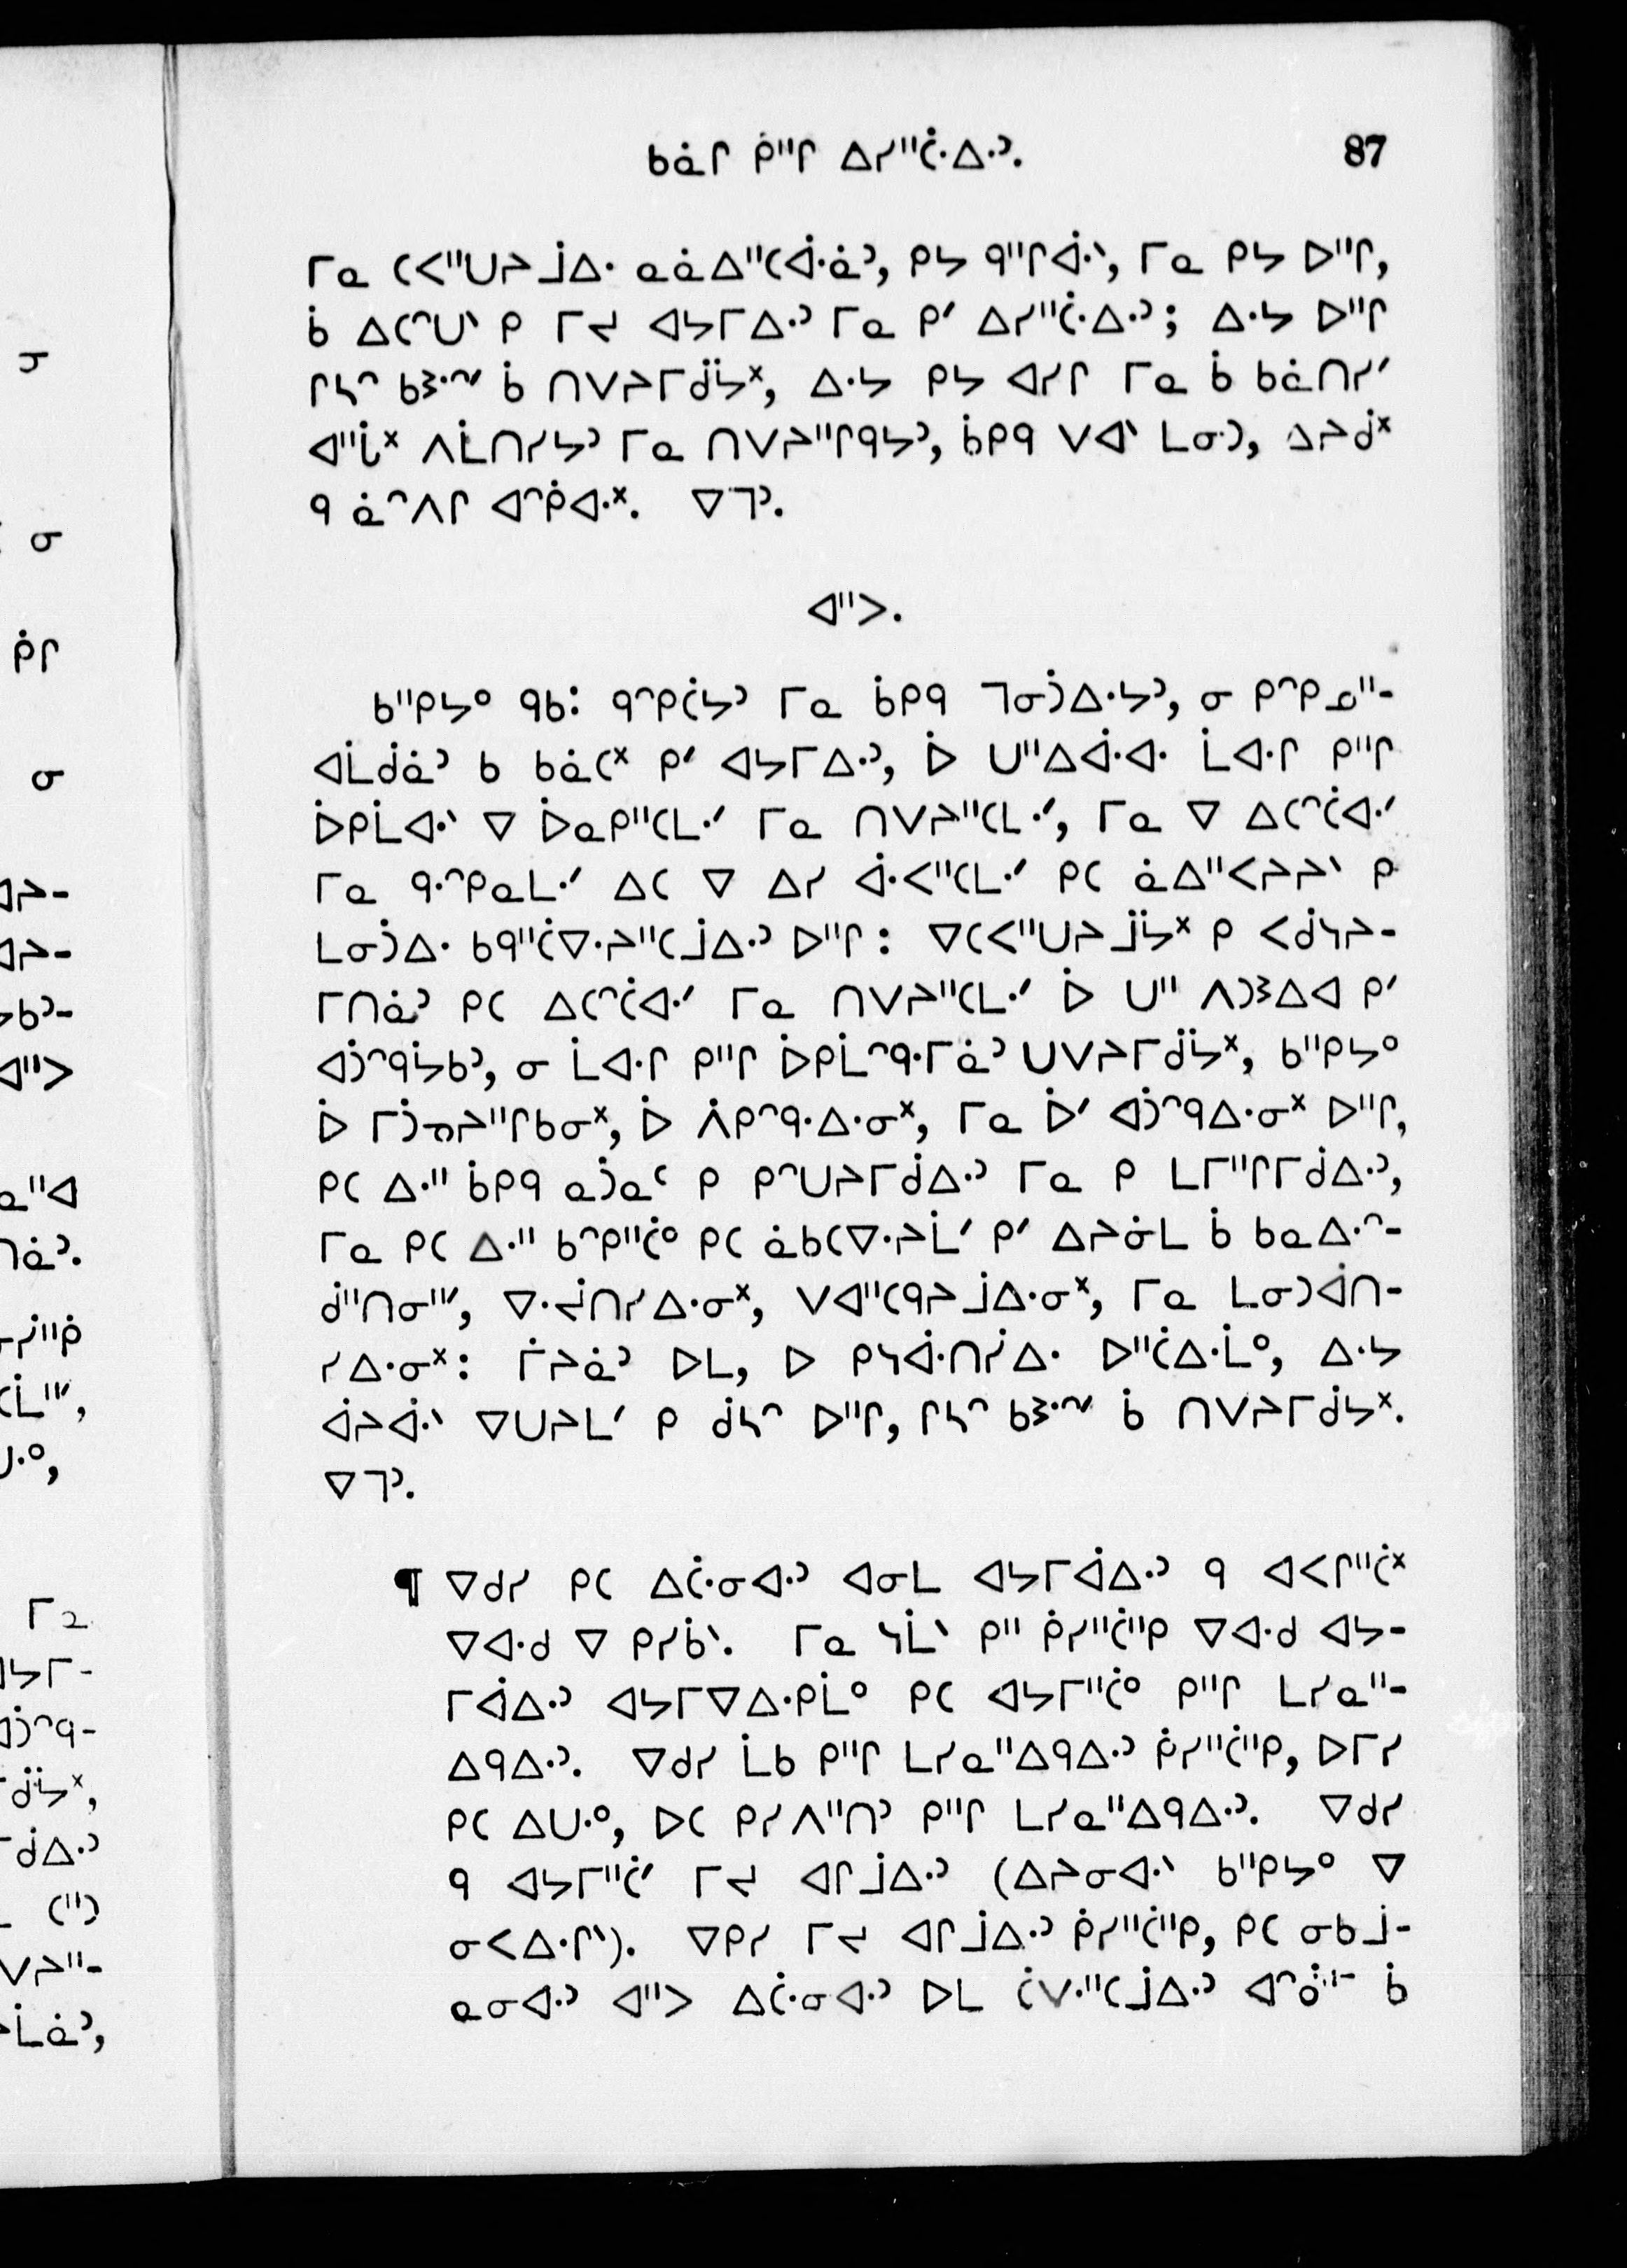 ᑲᓈᒋ ᑮᐦᒋ ᐃᓯᐦᑖᐧᐃᐧᐣ. 87
ᒥᓇ ᑕᐸᐦᑌᔨᒨᐃᐧ ᓇᓈᐃᐦᑕᐚᓈᐣ, ᑭᔭ ᑫᐦᒋᐚᐠ, ᒥᓇ ᑭᔭ ᐅᐦᒋ,
ᑳ ᐃᑕᐢᑌᐠ ᑭ ᒥᔪ ᐊᔭᒥᐃᐧᐣ ᒥᓇ ᑭᐟ ᐃᓯᐦᑖᐧᐃᐧᐣ; ᐃᐧᔭ ᐅᐦᒋ
ᒋᓴᐢ ᑲᕒᐧᐢᐟ ᑳ ᑎᐯᔨᒥᑰᔭᕽ, ᐃᐧᔭ ᑭᔭ ᐊᓯᒋ ᒥᓇ ᑳ ᑲᓈᑎᓯᐟ
ᐊᐦᒑᕽ ᐱᒫᑎᓯᔭᐣ ᒥᓇ ᑎᐯᔨᐦᒋᑫᔭᐣ, ᑳᑭᑫ ᐯᐊᐠ ᒪᓂᑐ, ᐃᔨᑯᕽ
ᑫ ᓈᐢᐱᒋ ᐊᐢᑮᐊᐧᕽ. ᐁᒣᐣ.
ᐊᐦᐳ.
ᑲᐦᑭᔭᐤ ᑫᑲᐩ ᑫᐢᑭᑖᔭᐣ ᒥᓇ ᑳᑭᑫ ᒣᓂᑑᐃᐧᔭᐣ, ᓂ ᑭᐢᑭᓄᐦ-
ᐊᒫᑰᓈᐣ ᑲ ᑲᓈᑕᕽ ᑭᐟ ᐊᔭᒥᐃᐧᐣ, ᐆ ᑌᐦᐃᐚᐊᐧ ᒫᐊᐧᒋ ᑭᐦᒋ
ᐆᑭᒫᐊᐧᐠ ᐁ ᐆᓇᑭᐦᑕᒪᐧᐟ ᒥᓇ ᑎᐯᔨᐦᑕᒪᐧᐟ, ᒥᓇ ᐁ ᐃᑕᐢᑖᐊᐧᐟ
ᒥᓇ ᑫᐧᐢᑭᓇᒪᐧᐟ ᐃᑕ ᐁ ᐃᓯ ᐚᐸᐦᑕᒪᐧᐟ ᑭᑕ ᓈᐃᐦᐸᔨᔨᐠ ᑭ
ᒪᓂᑑᐃᐧ ᑲᑫᐦᑖᐁᐧᔨᐦᑕᒨᐃᐧᐣ ᐅᐦᒋ: ᐁᑕᐸᐦᑌᔨᒨᔭᕽ ᑭ ᐸᑯᓭᔨ-
ᒥᑎᓈᐣ ᑭᑕ ᐃᑕᐢᑖᐊᐧᐟ ᒥᓇ ᑎᐯᔨᐦᑕᒪᐧᐟ ᐆ ᑌᐦ ᐱᑐᕒᐃᐊ ᑭᐟ
ᐊᑑᐢᑫᔮᑲᐣ, ᓂ ᒫᐊᐧᒋ ᑭᐦᒋ ᐆᑭᒫᐢᑫᐧᒥᓈᐣ ᑌᐯᔨᒥᑰᔭᕽ, ᑲᐦᑭᔭᐤ
ᐆ ᒥᑑᓀᔨᐦᒋᑲᓂᕽ, ᐆ ᐲᑭᐢᑫᐧᐃᐧᓂᕽ, ᒥᓇ ᐆᐟ ᐊᑑᐢᑫᐃᐧᓂᕽ ᐅᐦᒋ,
ᑭᑕ ᐃᐧᐦ ᑳᑭᑫ ᓇᑑᓇᑦ ᑭ ᑭᐢᑌᔨᒥᑰᐃᐧᐣ ᒥᓇ ᑭ ᒪᒥᐦᒋᒥᑰᐃᐧᐣ,
ᒥᓇ ᑭᑕ ᐃᐧᐦ ᑲᐢᑭᐦᑖᐤ ᑭᑕ ᓈᑲᑕᐁᐧᔨᒫᐟ ᑭᐟ ᐃᔨᓃᒪ ᑳ ᑲᓇᐃᐧᐢ-
ᑰᐦᑎᓂᐦᐟ, ᐁᐧᔫᑎᓯᐃᐧᓂᕽ, ᐯᐊᐦᑕᑫᔨᒨᐃᐧᓂᕽ, ᒥᓇ ᒪᓂᑐᐚᑎ-
ᓯᐃᐧᓂᕽ: ᒦᔨᓈᐣ ᐅᒪ, ᐅ ᑭᓭᐚᑎᓰᐃᐧ ᐅᐦᑖᐃᐧᒫᐤ, ᐃᐧᔭ
ᐚᔨᐚᐠ ᐁᑌᔨᒪᐟ ᑭ ᑰᓴᐢ ᐅᐦᒋ, ᒋᓴᐢ ᑲᕒᐧᐢᐟ ᑳ ᑎᐯᔨᒥᑰᔭᕽ.
ᐁᒣᐣ.
¶ ᐁᑯᓯ ᑭᑕ ᐃᑖᐧᓂᐊᐧᐣ ᐊᓂᒪ ᐊᔭᒥᐚᐃᐧᐣ ᑫ ᐊᐸᒋᐦᑖᕽ
ᐁᐊᐧᑯ ᐁ ᑭᓯᑳᐠ. ᒥᓇ ᓭᒫᐠ ᑭᐦ ᑮᓯᐦᑖᐦᑭ ᐁᐊᐧᑯ ᐊᔭ-
ᒥᐚᐃᐧᐣ ᐊᔭᒥᐁᐃᐧᑭᒫᐤ ᑭᑕ ᐊᔭᒥᐦᑖᐤ ᑭᐦᒋ ᒪᓯᓇᐦ-
ᐃᑫᐃᐧᐣ. ᐁᑯᓯ ᒫᑲ ᑭᐦᒋ ᒪᓯᓇᐦᐃᑫᐃᐧᐣ ᑮᓯᐦᑖᐦᑭ, ᐅᒥᓯ
ᑭᑕ ᐃᑌᐧᐤ, ᐅᑕ ᑭᓯᐱᐦᑎᐣ ᑭᐦᒋ ᒪᓯᓇᐦᐃᑫᐃᐧᐣ. ᐁᑯᓯ
ᑫ ᐊᔭᒥᐦᑖᐟ ᒥᔪ ᐊᒋᒨᐃᐧᐣ (ᐃᔨᓂᐊᐧᐠ ᑲᐦᑭᔭᐤ ᐁ
ᓂᐸᐃᐧᒋᐠ). ᐁᑭᓯ ᒥᔪ ᐊᒋᒨᐃᐧᐣ ᑮᓯᐦᑖᐦᑭ, ᑭᑕ ᓂᑲᒨ-
ᓇᓂᐊᐧᐣ ᐊᐦᐳ ᐃᑖᐧᓂᐊᐧᐣ ᐅᒪ ᑖᐯᐧᐦᑕᒨᐃᐧᐣ ᑳ